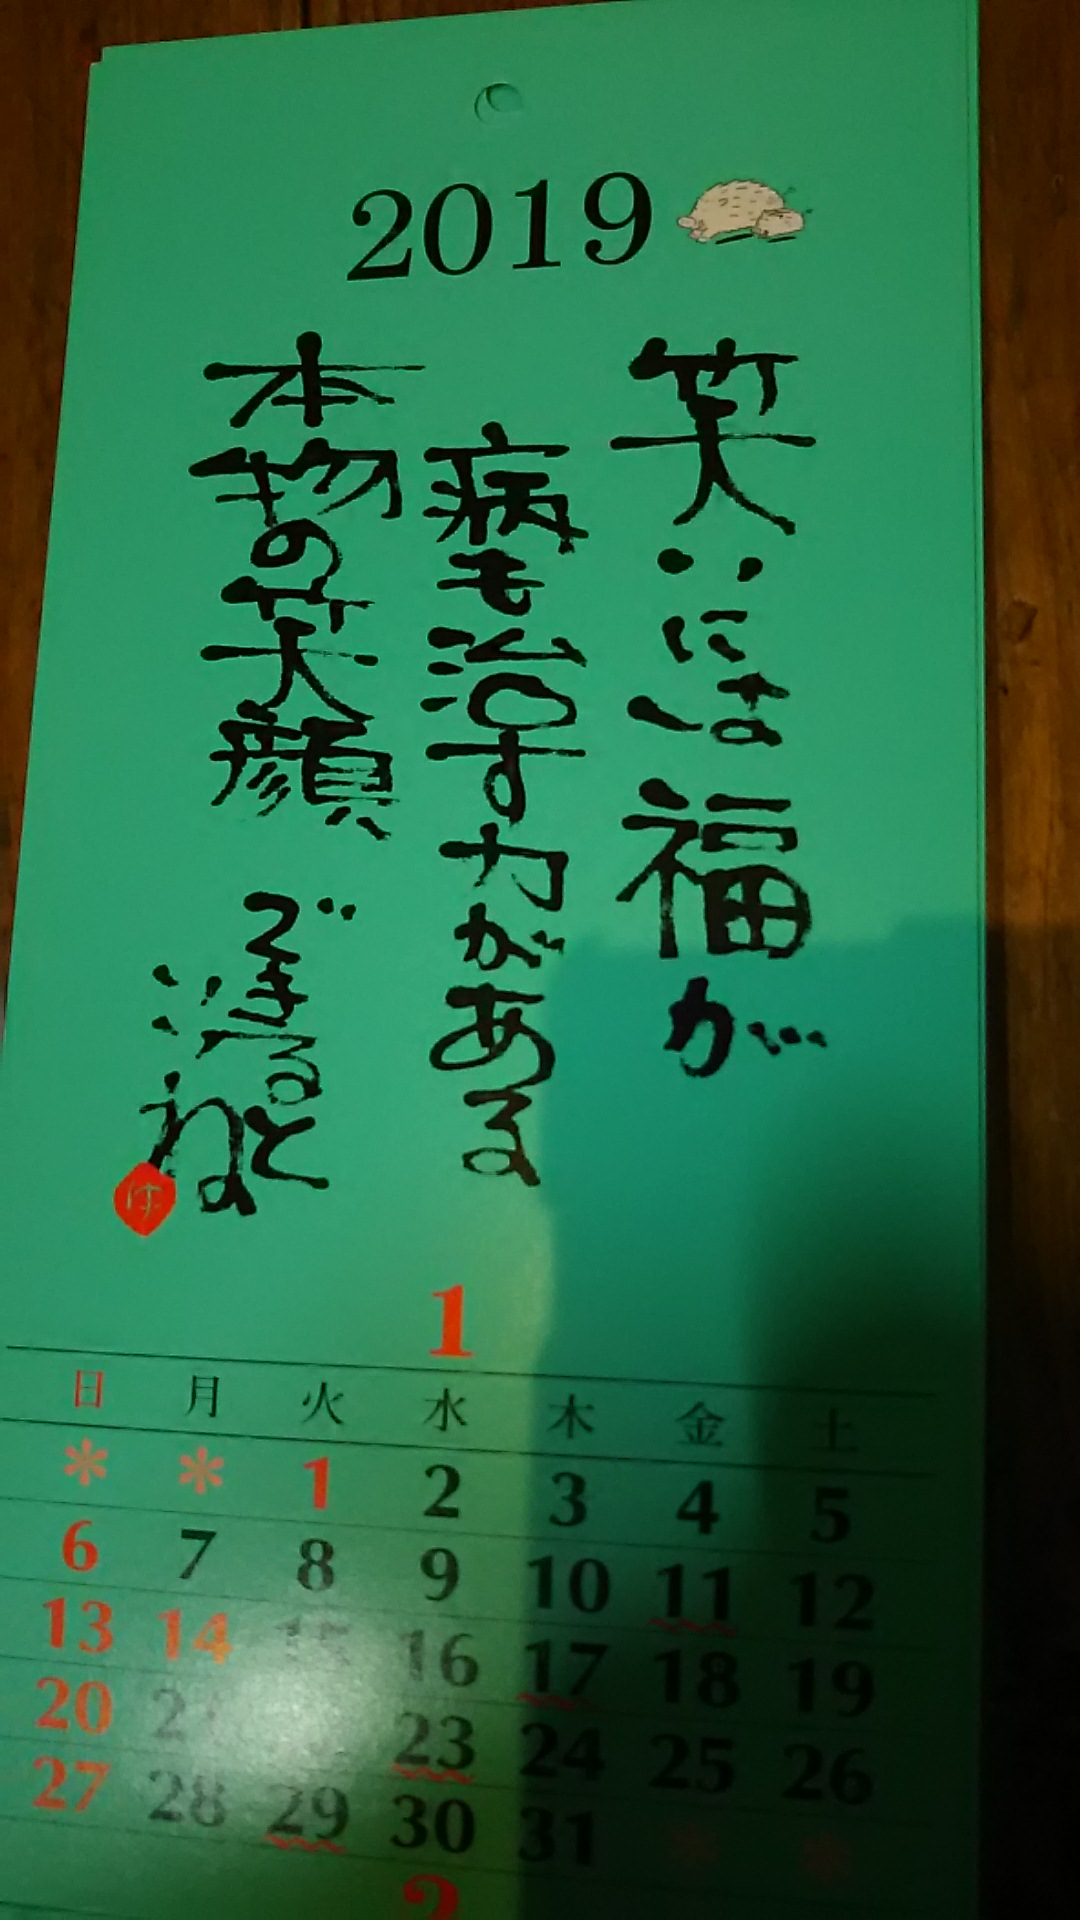 2019
笑いには福が
病も治す力がある
本物の笑顔
できると
いいね
1
日 月 火 水 木 金 土
* * 1 2 3 4 5
6 7 8 9 10 11 12
13 14 15 16 17 18 19
20 21 23 24 25 26
27 28 29 30 31 * *
2